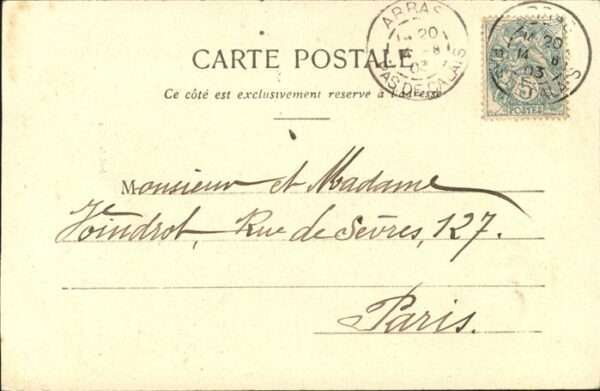 ARRAS
20
14 - 8
03
PAS DE CALAIS
20
14 8
03
5
POSTES
CARTE POSTALE
Ce côté est exclusivement reserve à l'adresse
Monsieur et Madame
Voindrot, Rue de Sèvres, 127.
Paris.